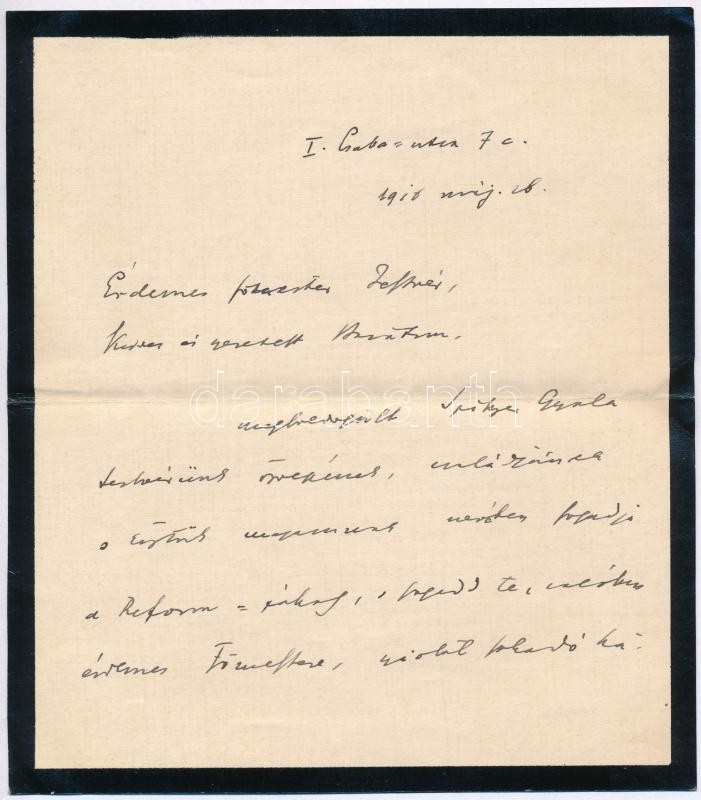 I. Csaba-utca 7 c.
1918 máj. 18.
Érdemes főmester Testvér,
Kedves és szeretett Barátom.
megboldogult Spitzer Gyula
testvérünk özvegyének, családjának
s magunknak nevében fogadja
a Reform = páholy, s fogadd te, valóban
érdemes Főmestere, szívből fakadó há-
darabanth